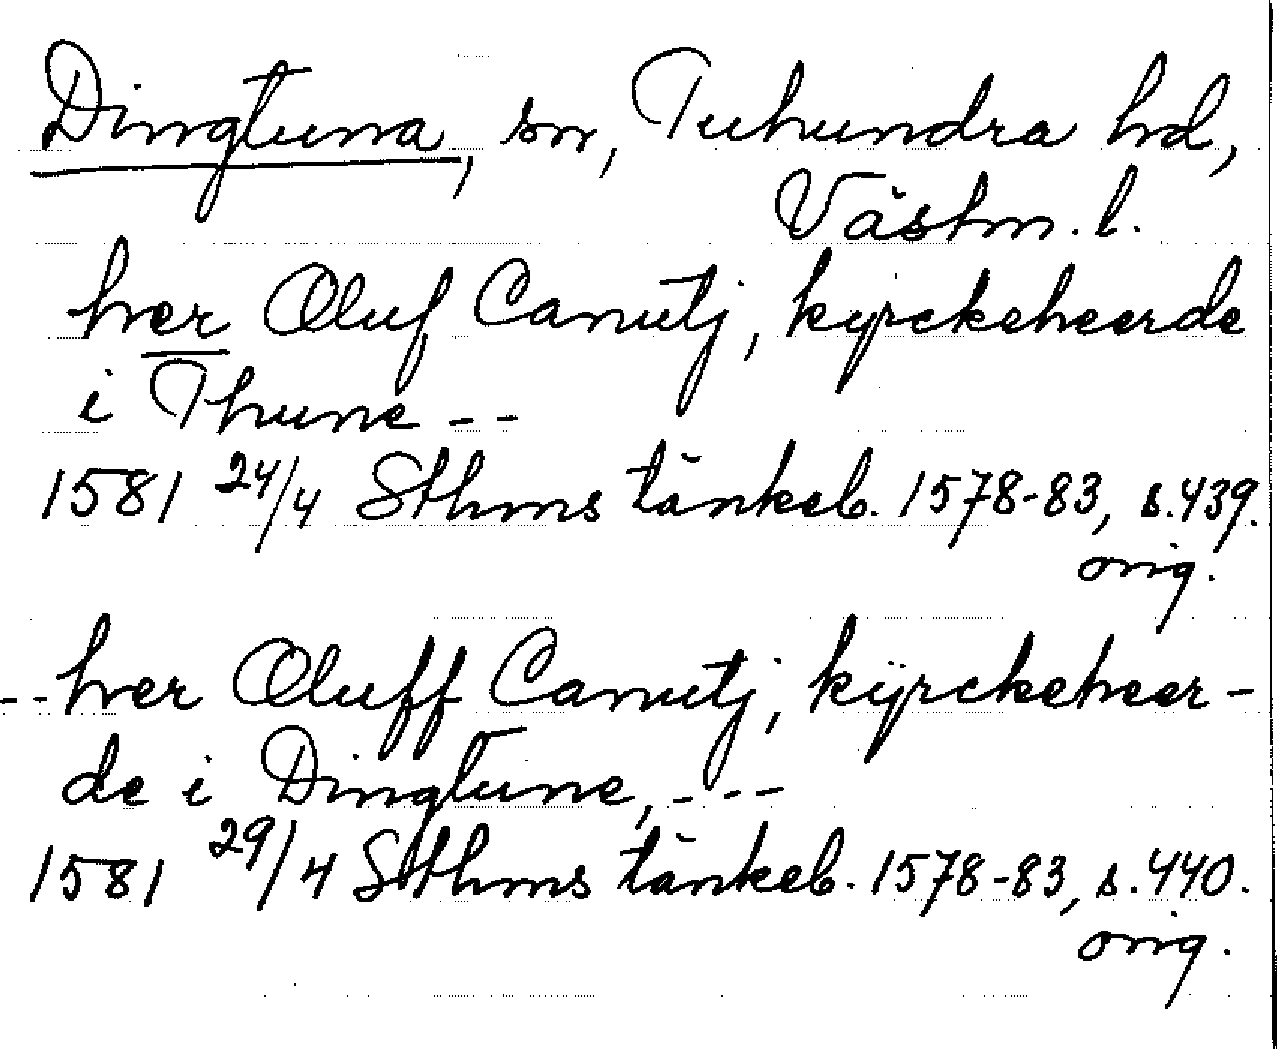 Dingtuna, sn, Tuhundra hd,
Västm. l.
her Oluf Canutj, kyrckeheerde
i Thune - -
1581 24/4 Sthms tänkeb. 1578-83, s. 439.
orig.
- - her Oluff Canutj, kÿrckeheer-
de i Dingtune, - - -
1581 29/4 Sthms tänkeb. 1578-83, s. 440.
orig.